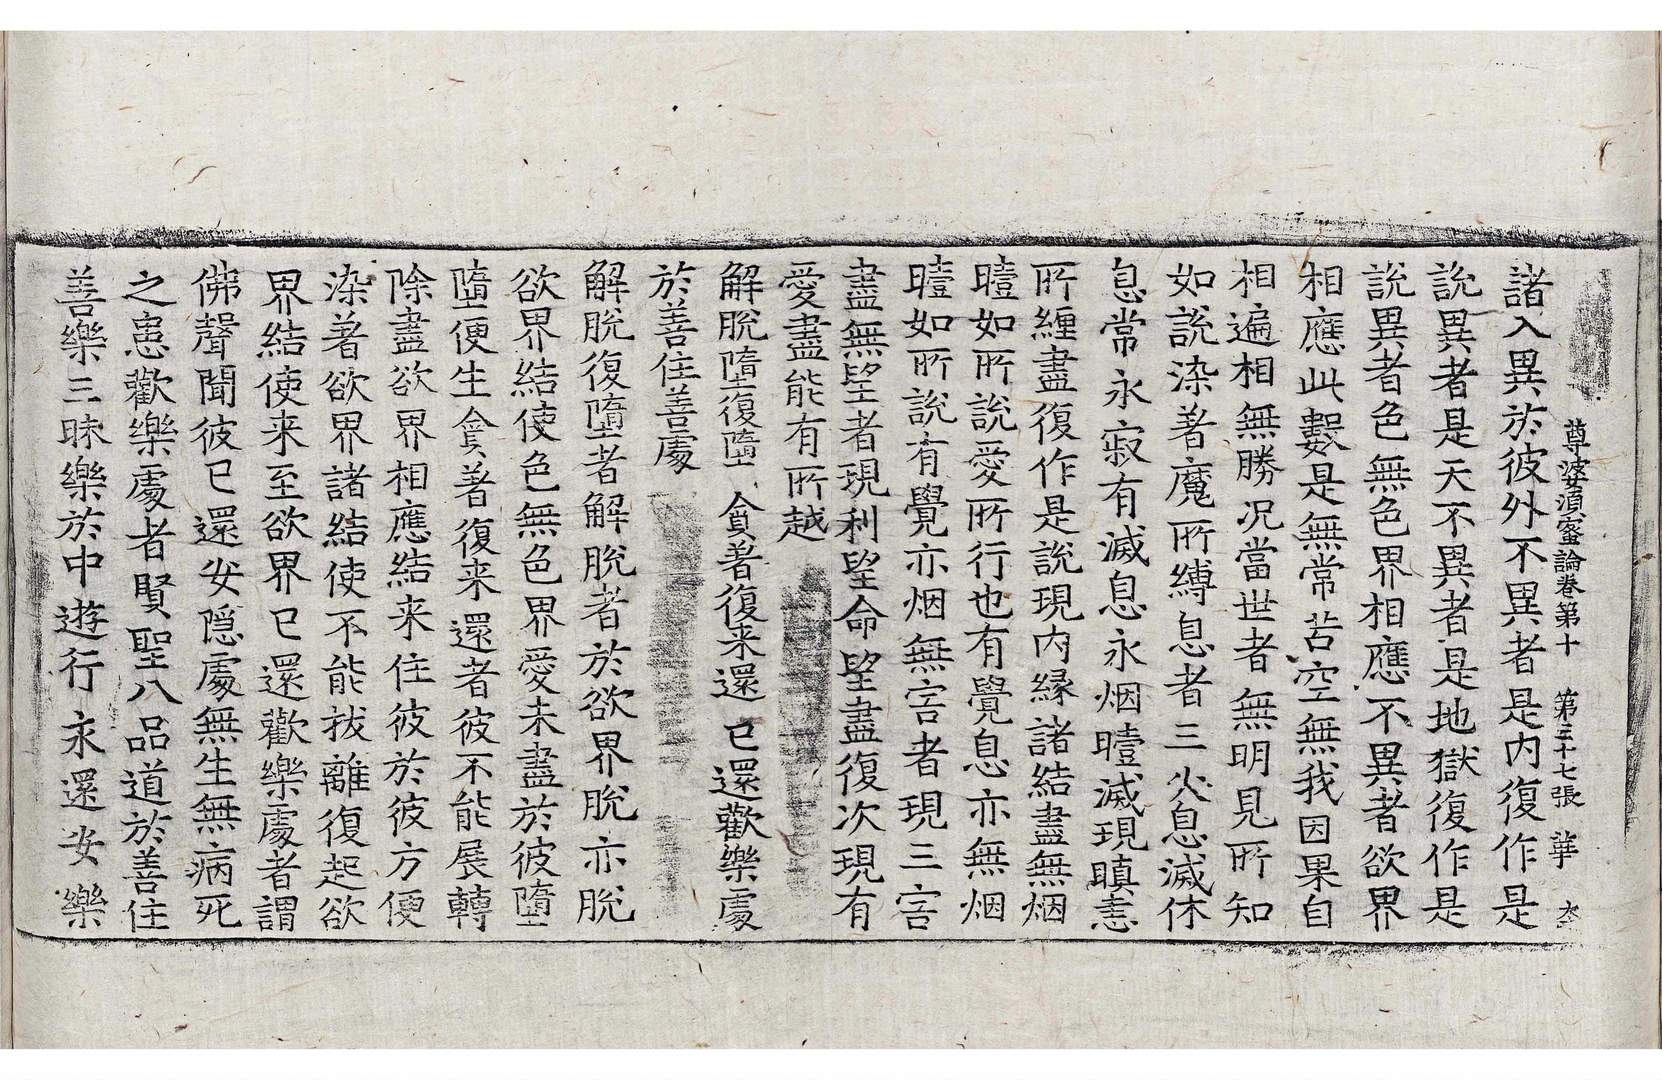 尊婆湏蜜論卷第十　第三十七張　華
諸入異於彼外不異者是内復作是
說異者是天不異者是地獄復作是
說異者色無色界相應不異者欲界
相應此數是無常苦空無我因果自
相遍相無勝况當世者無明見所知
如說染著魔所縛息者三火息滅休
息常永寂有滅息永烟曀滅現瞋恚
所纏盡復作是說現内縁諸結盡無烟
曀如所說愛所行也有覺息亦無烟
曀如所說有覺亦烟無害者現三害
盡無望者現利望命望盡復次現有
愛盡能有所越
解脫墮復墮　貪著復来還　已還歡樂處
於善住善處
解脫復墮者解脫者於欲界脫亦脫
欲界結使色無色界愛未盡於彼墮
墮便生貪著復来還者彼不能展轉
除盡欲界相應結来住彼於彼方便
染著欲界諸結使不能拔離復起欲
界結使来至欲界已還歡樂處者謂
佛聲聞彼已還安隱處無生無病死
之患歡樂處者賢聖八品道於善住
善樂三昧樂於中遊行永還安樂